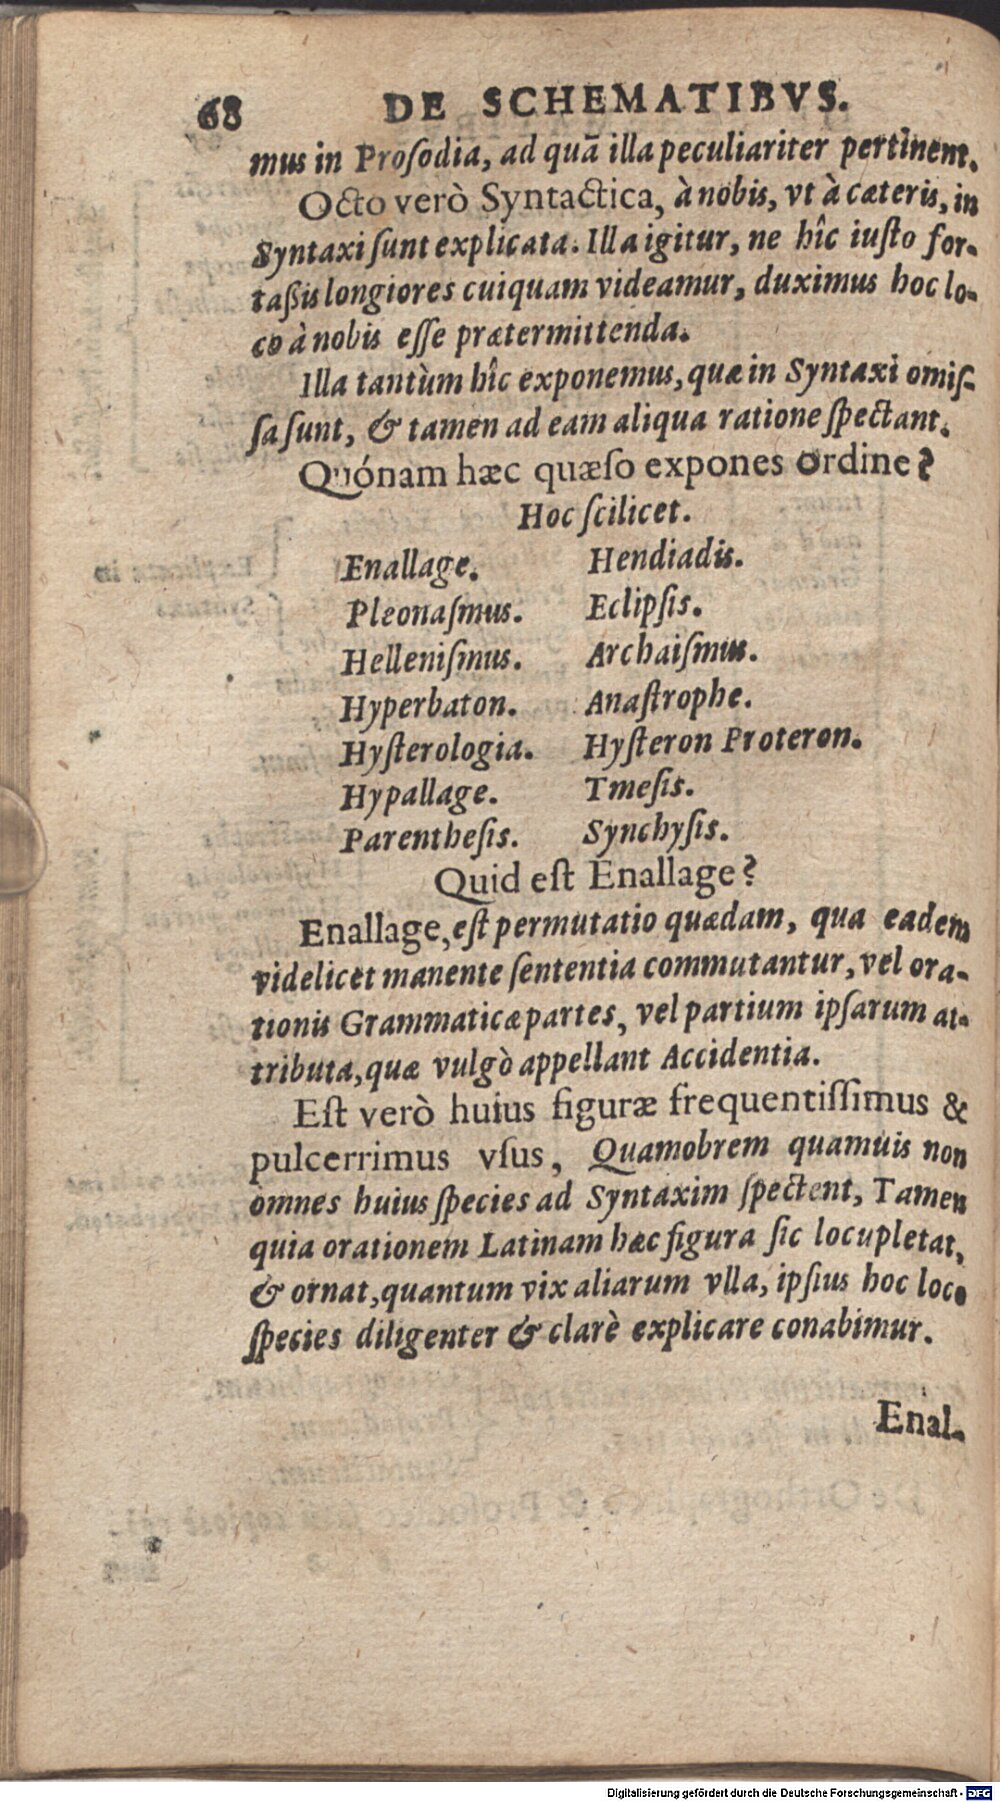 68 DE SCHEMATIBVS.
mus in Proſodia, ad quā illa peculiariter pertinent.
Octo verò Syntactica, à nobis, vt à cæteris, in
Syntaxi ſunt explicata. Illa igitur, ne hîc iuſto for-
taßis longiores cuiquam videamur, duximus hoc lo-
co à nobis eſſe prætermittenda.
Illa tantùm hîc exponemus, quæ in Syntaxi omiſ-
ſa ſunt, & tamen ad eam aliqua ratione ſpectant.
Quónam hæc quæſo expones ordine?
Hoc ſcilicet.
Enallage. Hendiadis.
Pleonaſmus. Eclipſis.
Helleniſmus. Archaiſmus.
Hyperbaton. Anaſtrophe.
Hyſterologia. Hyſteron Proteron.
Hypallage. Tmeſis.
Parentheſis. Synchyſis.
Quid eſt Enallage?
Enallage, eſt permutatio quædam, qua eadem
videlicet manente ſententia commutantur, vel ora-
tionis Grammaticæ partes, vel partium ipſarum at-
tributa, quæ vulgò appellant Accidentia.
Eſt verò huius figuræ frequentiſſimus &
pulcerrimus vſus, Quamobrem quamuis non
omnes huius ſpecies ad Syntaxim ſpectent, Tamen
quia orationem Latinam hæc figura ſic locupletat,
& ornat, quantum vix aliarum vlla, ipſius hoc loco
ſpecies diligenter & clarè explicare conabimur.
Enal-
Digitalisierung gefördert durch die Deutsche Forschungsgemeinschaft - DFG